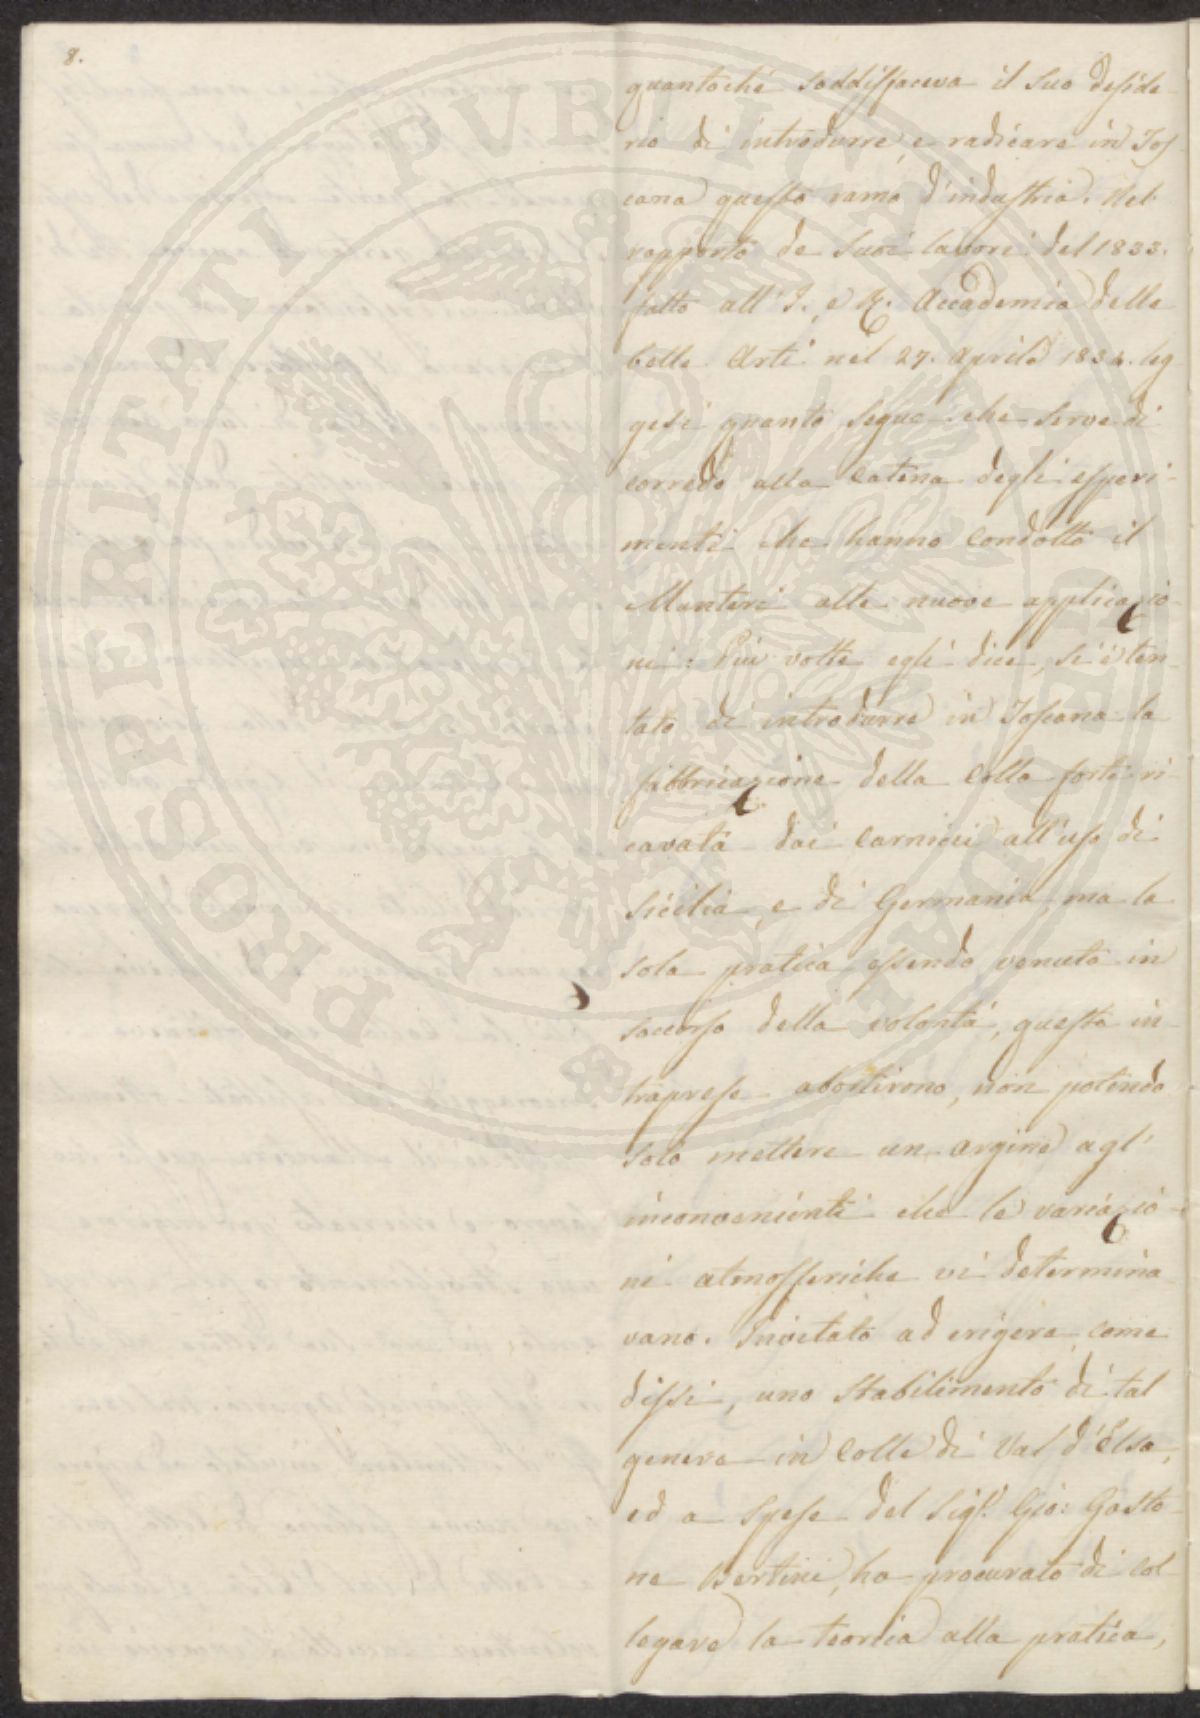 8.
quantochè soddisfaceva il suo deside-
rio di introdurre, e radicare in Tos-
cana questo ramo d'industria. Nel
rapporto de suoi lavori del 1833.
fatto all' I. e R. Accademia delle
belle Arti nel 27. Aprile 1834. leg-
gesi quanto segue che serve di
corredo alla catena degli esperi-
menti che hanno condotto il
Manteri alle nuove applicazio-
ni: Più volte egli dice, si è ten-
tato di introdurre in Toscana la
fabbricazione della colla forte ri-
cavata dai carnicci all'uso di
Sicilia, e di Germania, ma la
sola pratica essendo venuta in
soccorso della volontà, queste in-
traprese abortirono, non potendo
solo mettere un argine agl'
inconvenienti che le variazio-
ni atmosferiche vi determina-
vano. Invitato ad erigere, come
dissi, uno stabilimento di tal
genere in Colle di Val d'Elsa,
ed a spese del Sigr. Gio: Gasto-
ne Bertini, ho procurato di col-
legare la teoria alla pratica,
PROSPERITATI PVBLICAE